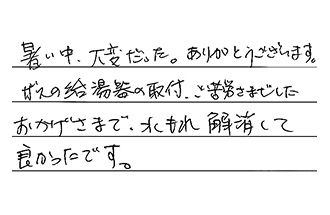 暑い中、大変だった。ありがとうございます。
ガスの給湯器の取付、ご苦労さまでした
おかげさまで、水もれ解消して
良かったです。